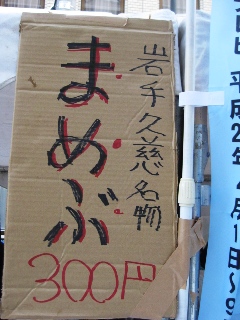 岩手久慈名物
まめぶ
300円
平成2
月1日～